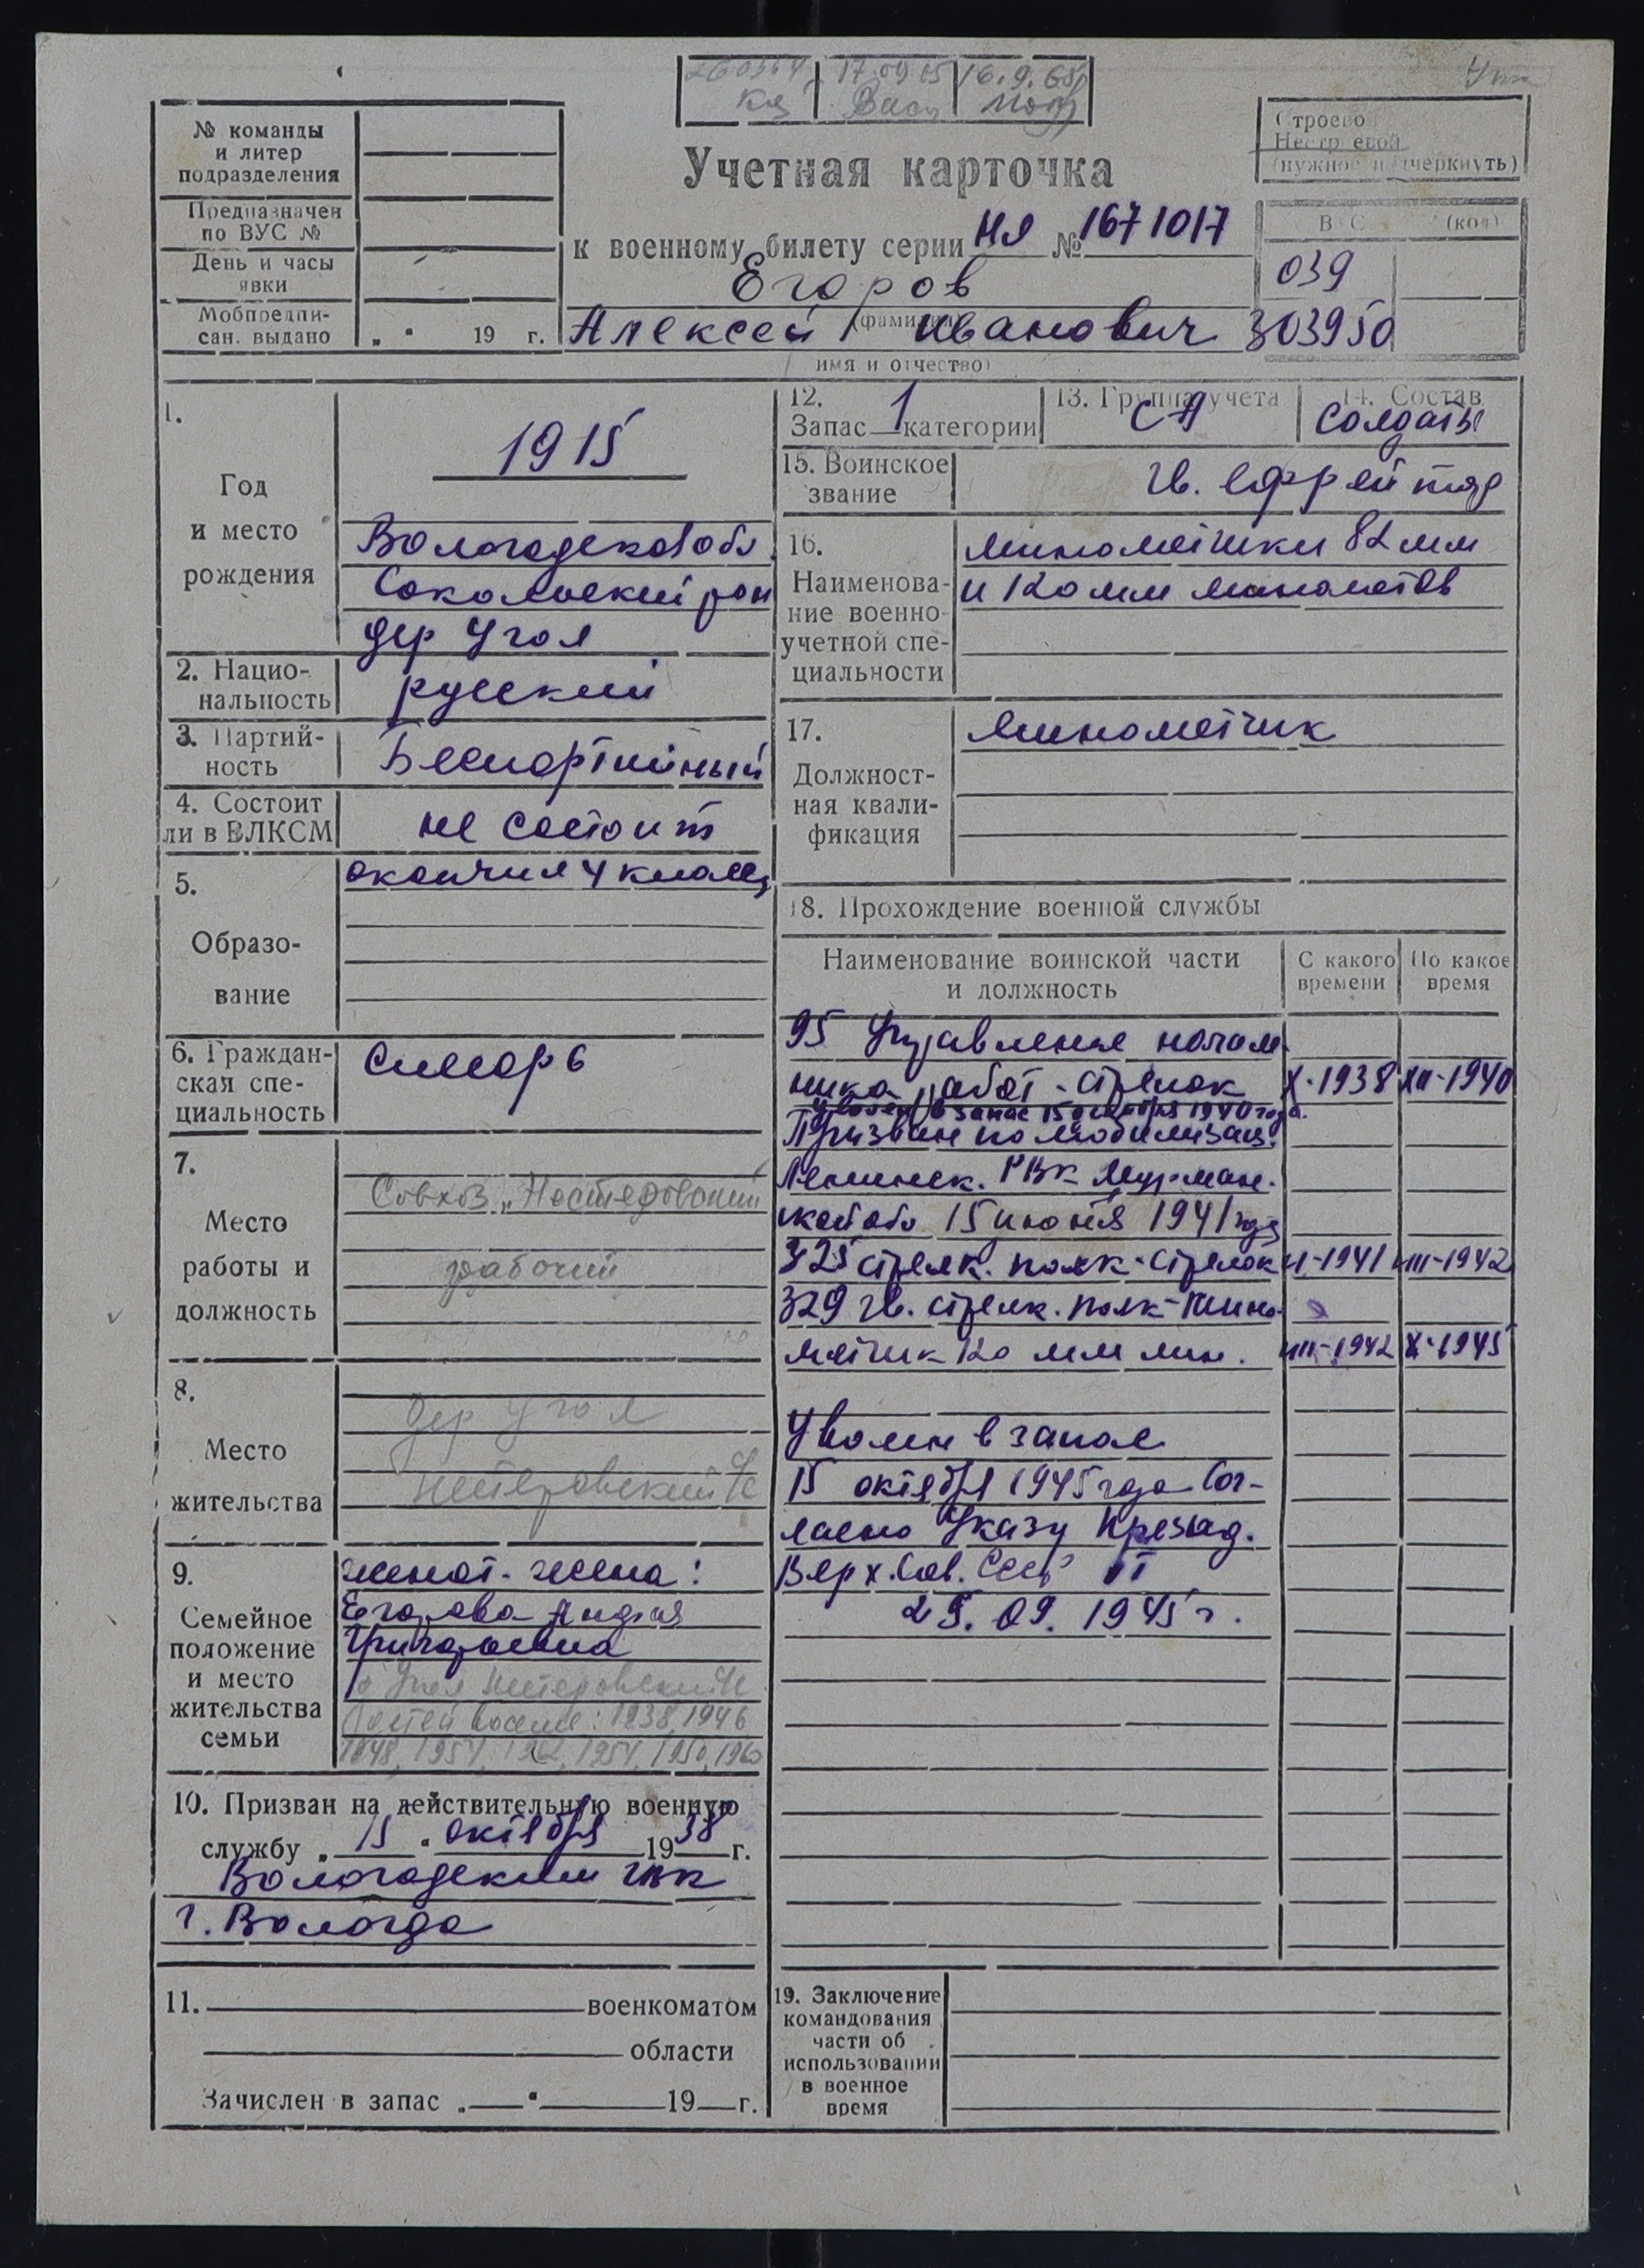 17.09.65 16.9.68
№ команды
и литер
подразделения
Предназначен
по ВУС №
День и часы
явки
Мобпредпи-
сан. выдано „ “ 19 г.
Учетная карточка
к военному билету серии НЯ № 1671017
Егоров
(фамилия)
Алексей Иванович
имя и отчество)
Строевой
Нестроевой
(нужное подчеркнуть)
ВУС (код)
039
303950
1.
Год
и место
рождения
1915
Вологодская обл.
Сокольский рон
дер Угол
2. Нацио-
нальность
русский
3. Партий-
ность
Беспартийный
4. Состоит
ли в ВЛКСМ
не состоит
5.
Образо-
вание
окончил 4 класса
6. Граждан-
ская спе-
циальность
Слесарь
7.
Место
работы и
должность
Совхоз „Нестеровский
рабочий
8.
Место
жительства
дер Угол
Нестеровский с/с
9.
Семейное
положение
и место
жительства
семьи
женат - жена:
Егорова Лидия
Григорьевна
д Угол Нестеровский с/с
Детей восемь: 1938, 1946
10. Призван на действительную военную
службу „ 15 “ октября 1938 г.
Вологодским гвк
г. Вологда
11. военкоматом
области
Зачислен в запас „ “ 19 г.
12.
Запас 1 категории
13. Группа учета
СА
14. Состав
Солдаты
15. Воинское
звание
гв. ефрейтор
16.
Наименова-
ние военно-
учетной спе-
циальности
минометчики 82 мм
и 120 мм минометов
17.
Должност-
ная квали-
фикация
Минометчик
18. Прохождение военной службы
Наименование воинской части
и должность
С какого
времени
По какое
время
95 Управление началь
ника работ - стрелок X-1938 XII-1940
Уволен в запас 15 декабря 1940 года.
Призван по мобилизац.
Ленинск. РВК Мурман.
ской обл 15 июня 1941 года
325 стрелк. полк - стрелок VI-1941 III-1942
329 гв. стрелк. полк - мино-
метчик 120 мм мин. III-1942 X-1945
Уволен в запас
15 октября 1945 года Сог-
ласно Указу Презид.
Верх. Сов. СССР от
25.09.1945 г.
19. Заключение
командования
части об
использовании
в военное
время